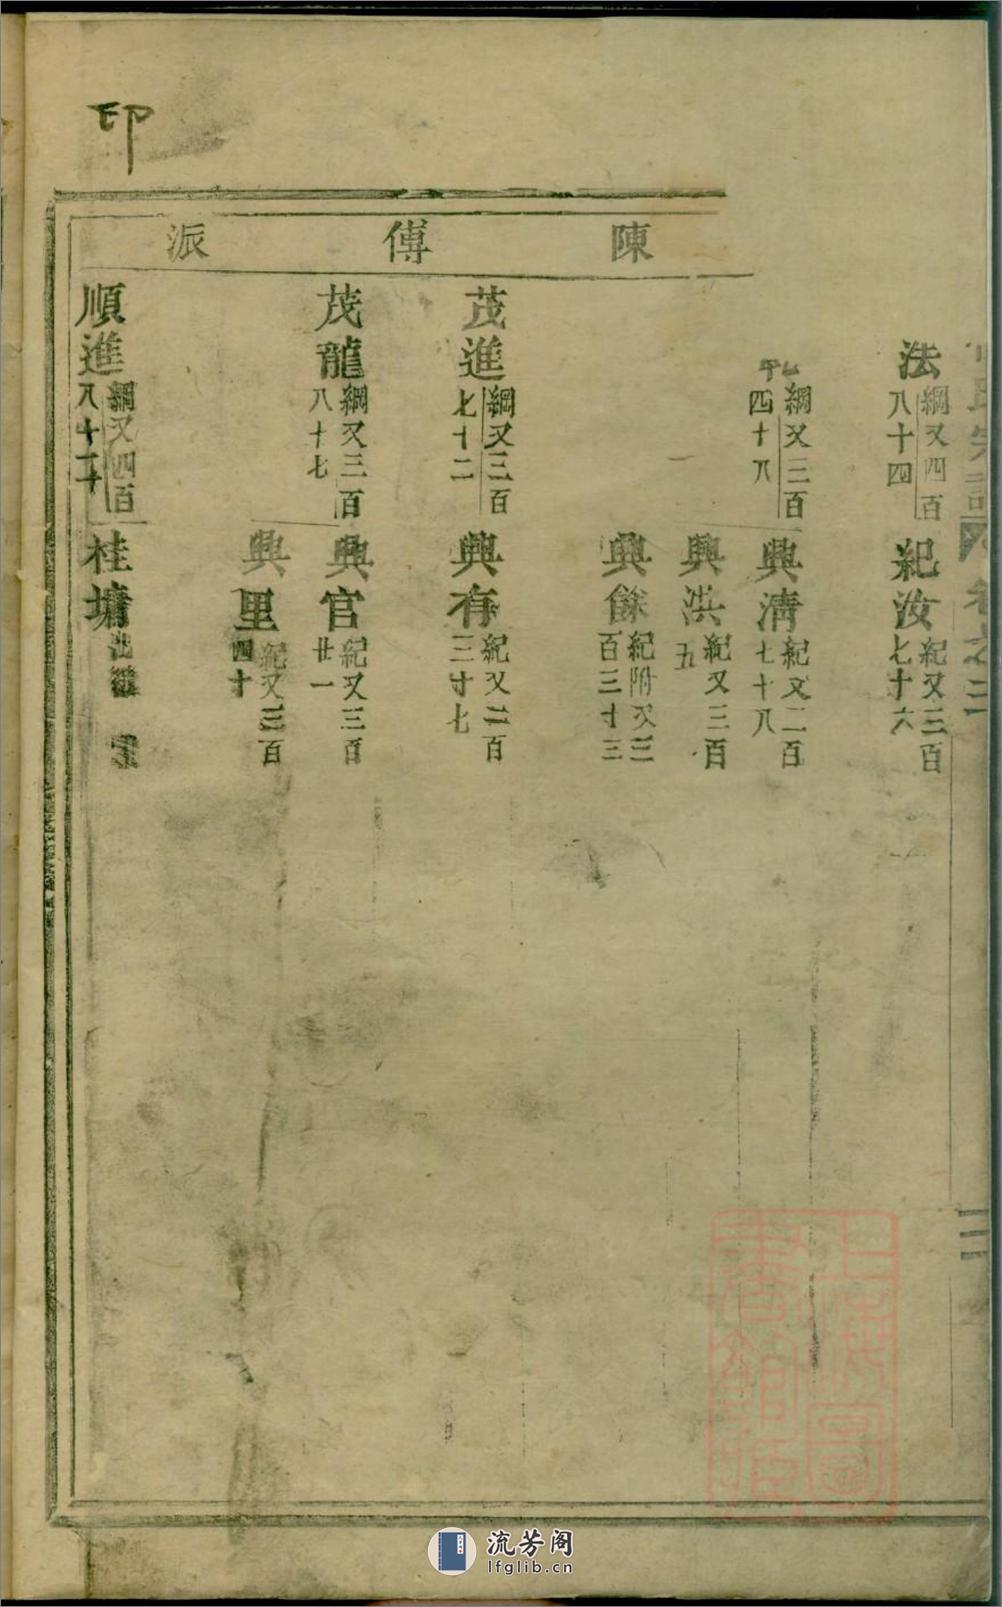 印
陳傅派
法 綱又四百八十四
紀汝 紀又三百七十六
綱又三百四十八
興清 紀又二百七十八
興洪 紀又三百五
興餘 紀附又三百三十三
茂進 綱又三百七十二
興有 紀又二百三十七
茂龍 綱又三百八十七
興官 紀又三百廿一
興里 紀又三百四十
順進 綱又四百八十二
桂墉 出繼
上海圖書館藏
流芳阁
lfglib.cn